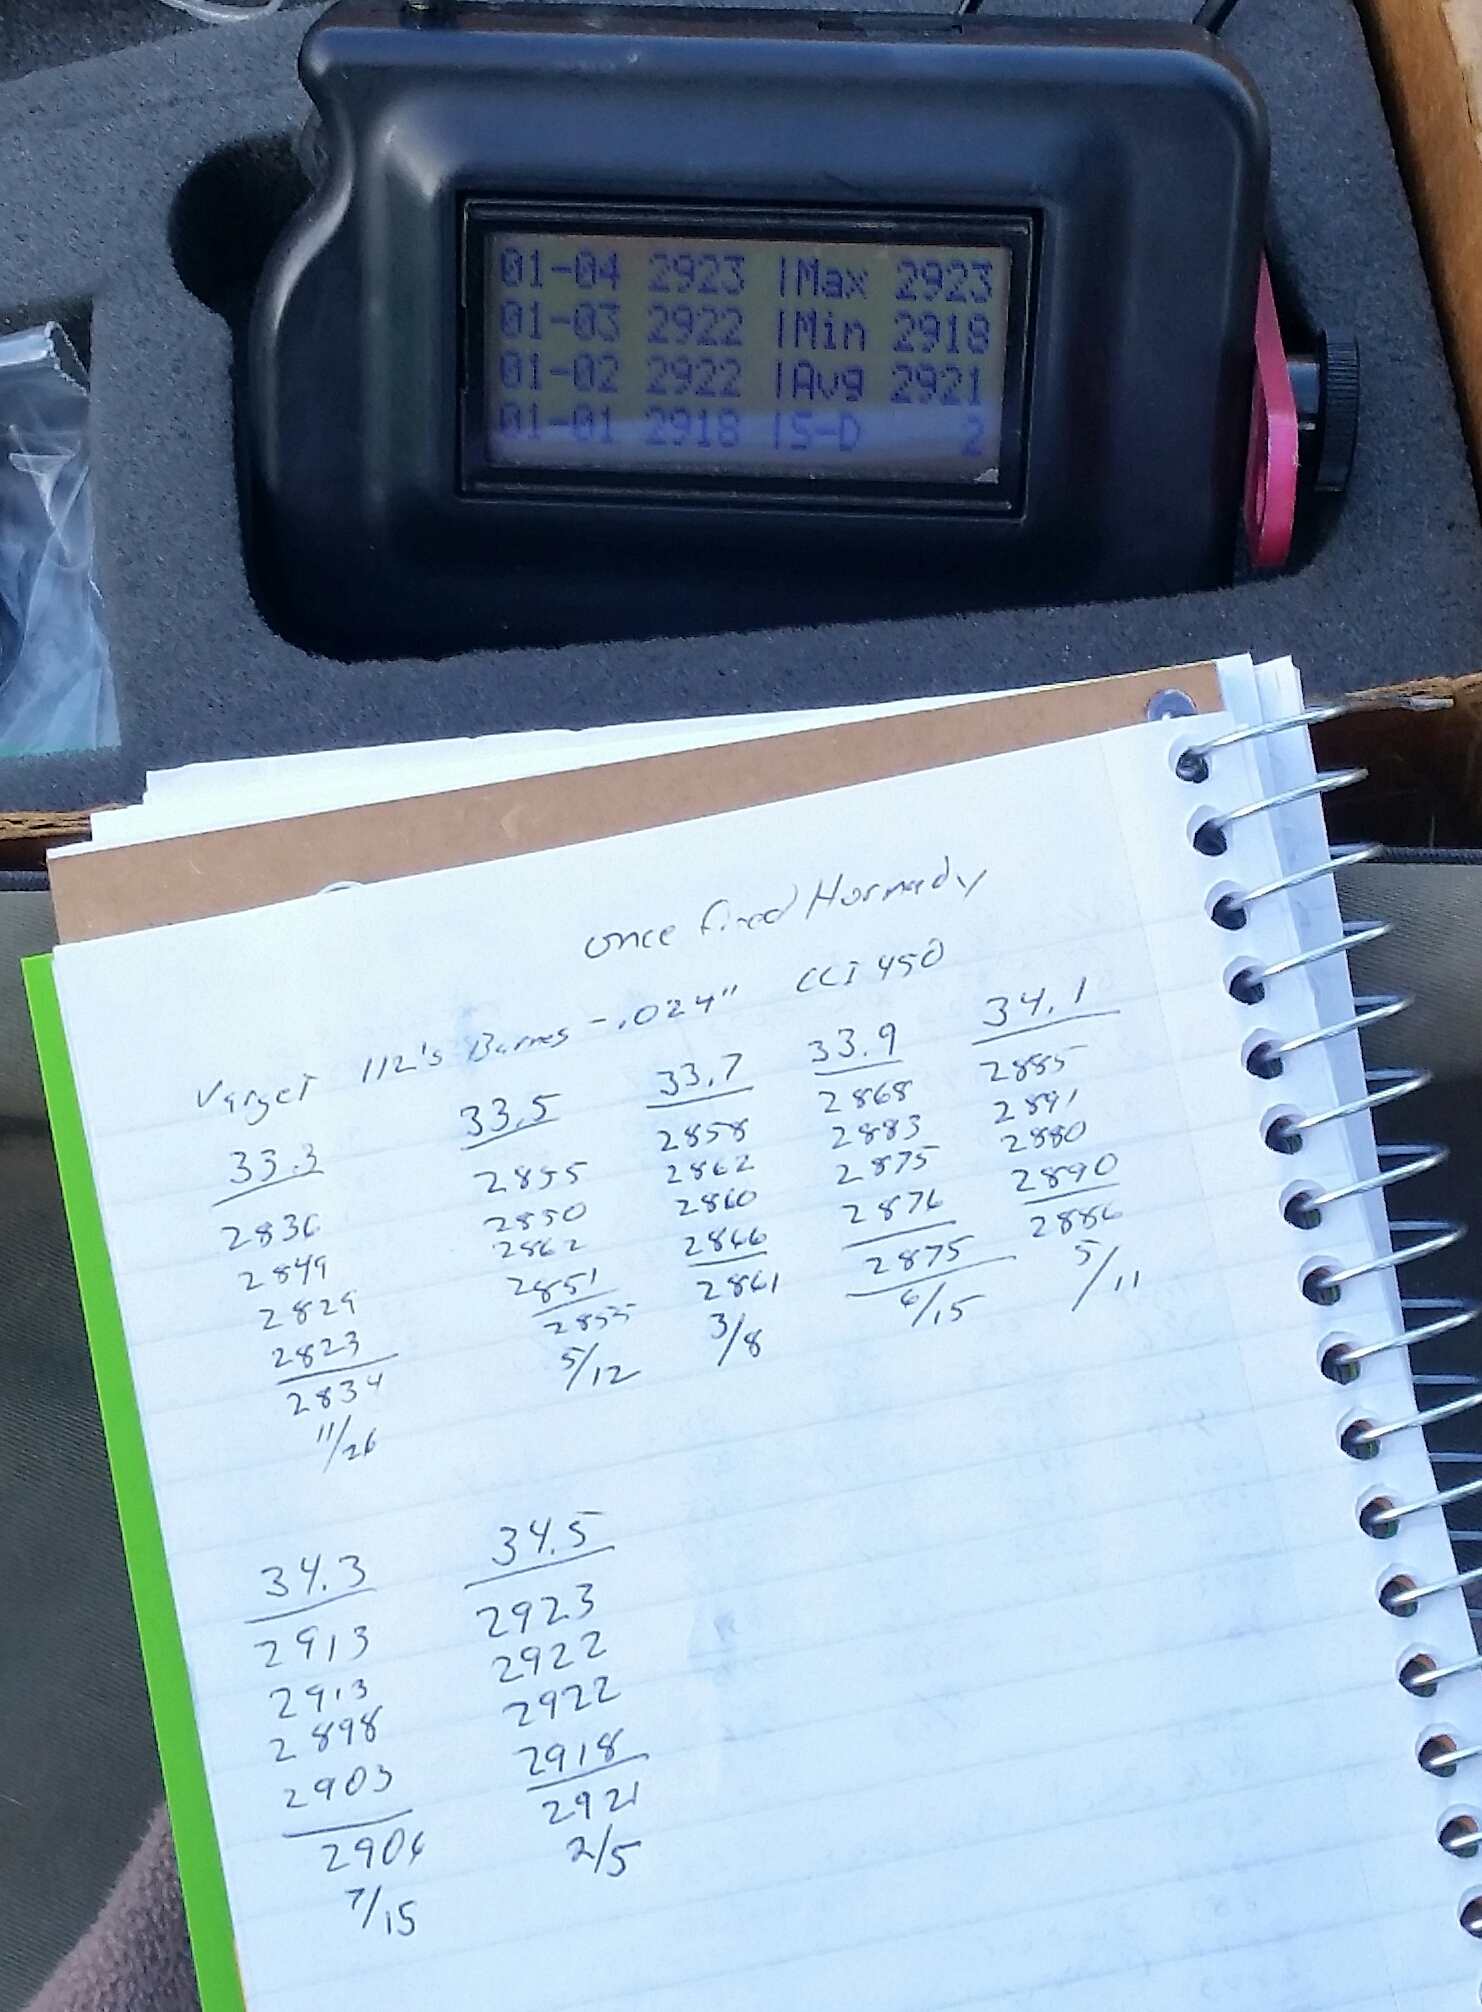 01-04 2923 |Max 2923
01-03 2922 |Min 2918
01-02 2922 |Avg 2921
01-01 2918 |S-D 2
once fired Hornady
Varget 112's Barnes -.024" CCI 450
33.3
2836
2849
2829
2823
2834
11/26
33.5
2855
2850
2862
2851
2855
5/12
33.7
2858
2862
2860
2866
2861
3/8
33.9
2868
2883
2875
2876
2875
6/15
34.1
2885
2891
2880
2890
2886
5/11
34.3
2913
2913
2898
2903
2906
7/15
34.5
2923
2922
2922
2918
2921
2/5